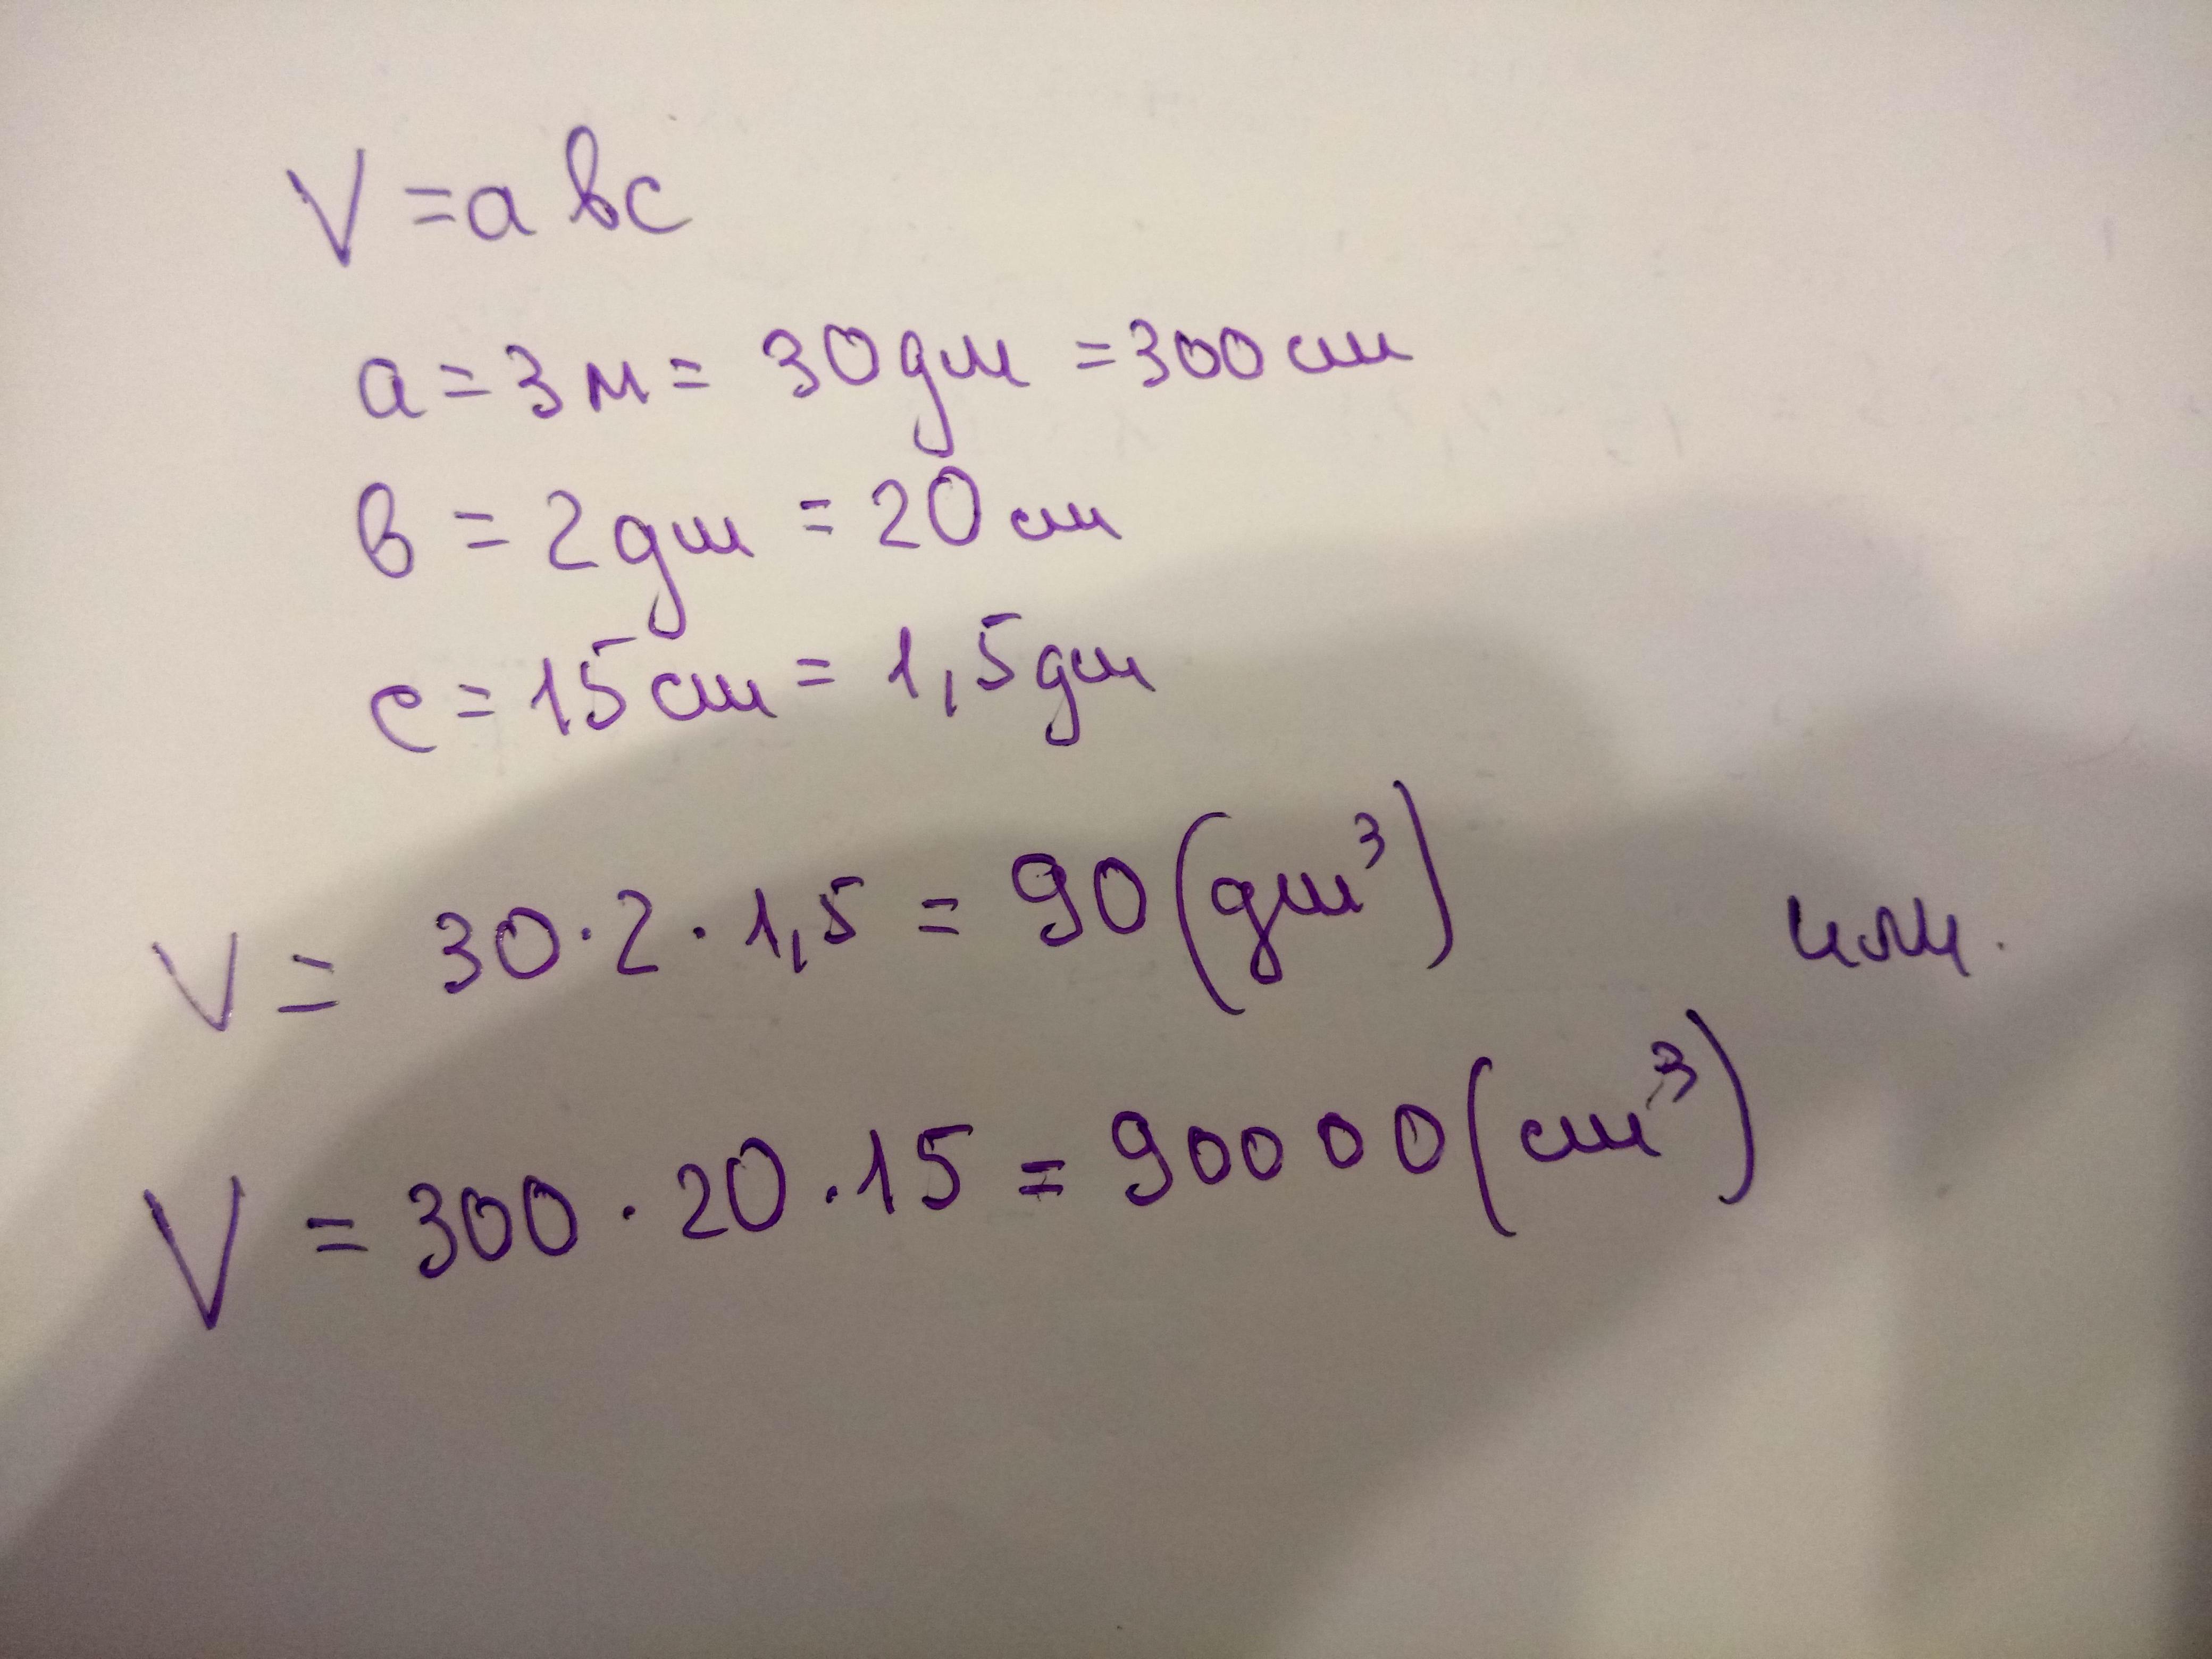 V = a b c
a = 3 м = 30 дм = 300 см
в = 2 дм = 20 см
c = 15 см = 1,5 дм
V = 30 · 2 · 1,5 = 90 (дм³) или.
V = 300 · 20 · 15 = 90000 (см³)